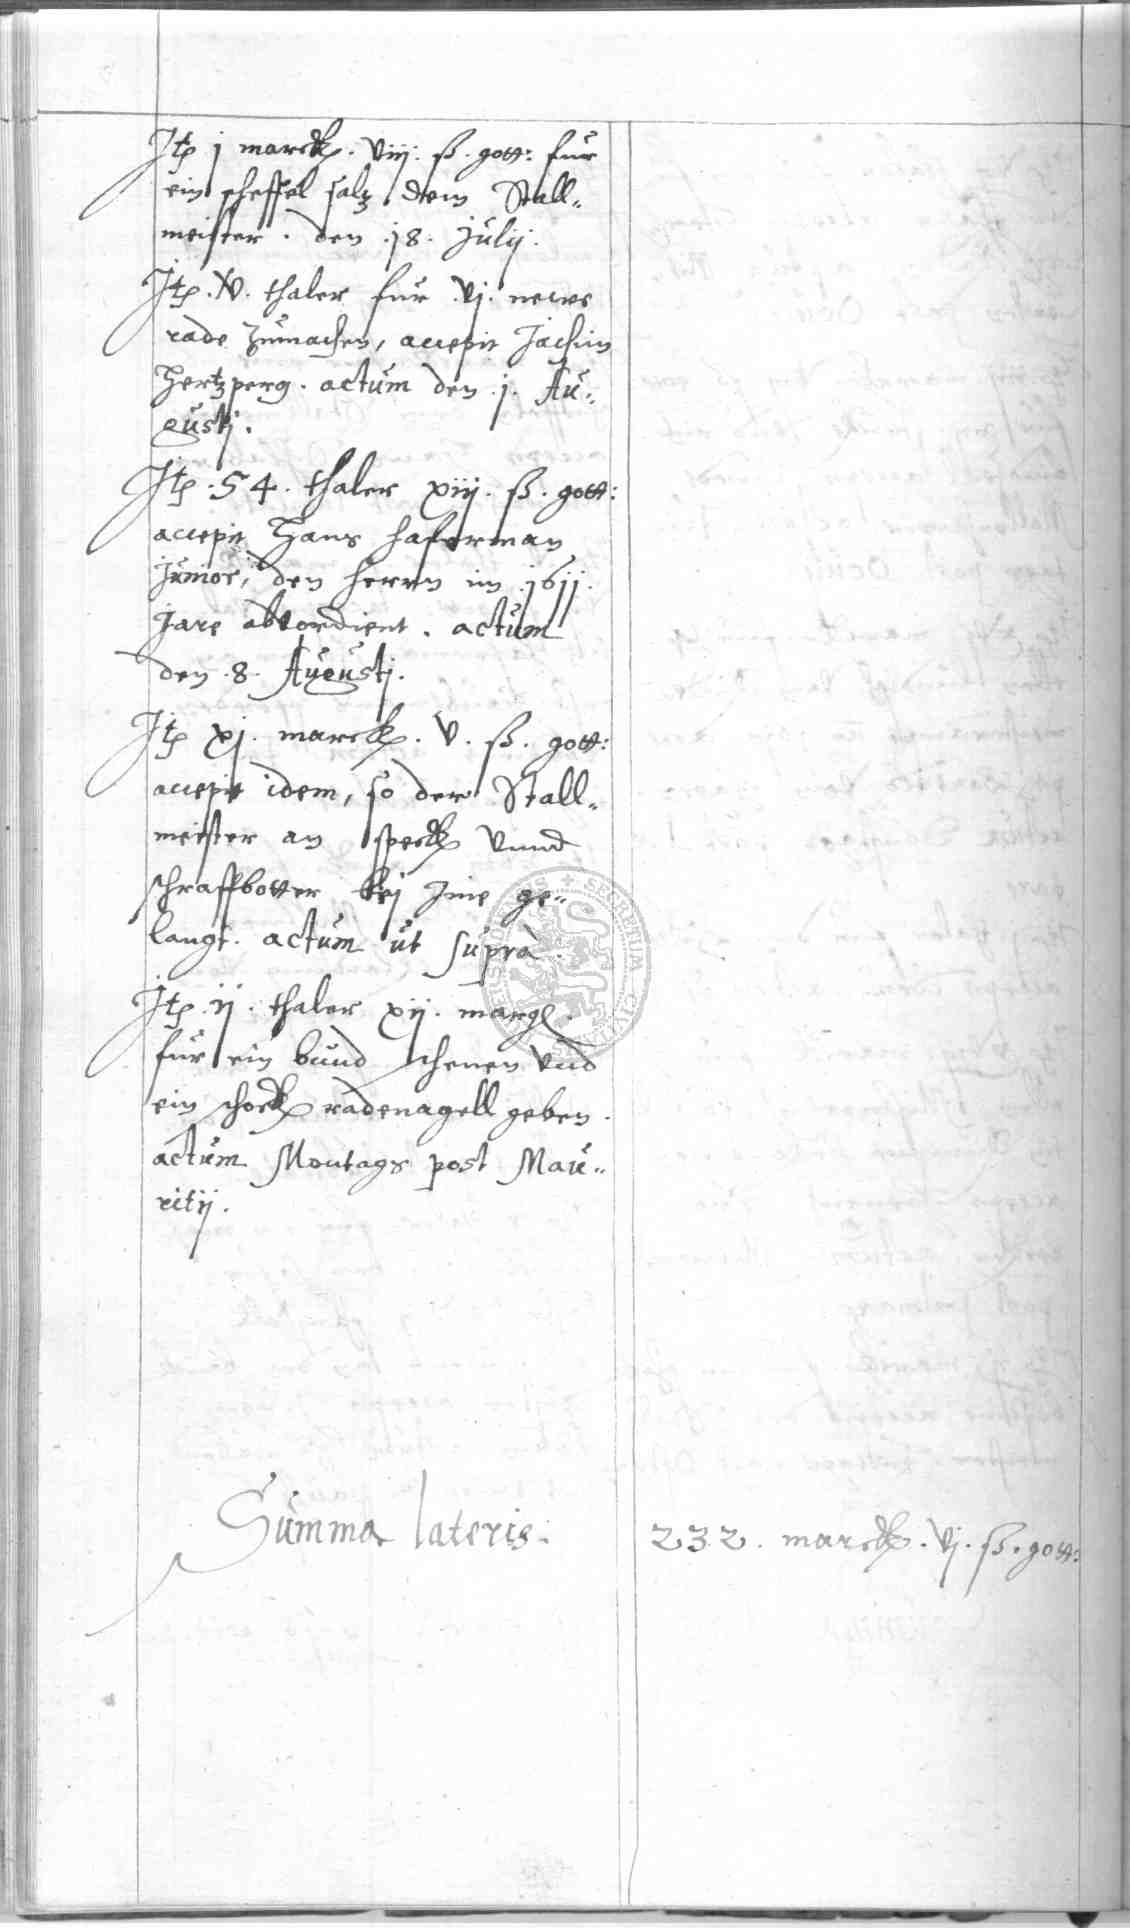 Itẽ j marck. viij. ß. gott: fur
ein scheffel saltz dem Stall-
meister. den .18. Julij.
Itẽ .xv. thaler fur .vj. newe
rade zumachen, accepit Jachim
Hertzperg. actum den .j. Au-
gustj.
Itẽ .54. thaler xiij. ß. gott:
accepit Hans haferman
Junior, den herrn im .1611.
Jare abverdient. actum
den .8. Augustj.
Itẽ xj. marck. v. ß. gott:
accepit idem, so der Stall-
meister an speck vnnd
schraffbotter bej Ime ge-
langt. actum ut suprà.
Itẽ .ij. thaler xij. margl.
fur ein bund schenen vnd
ein schock radenagell geben.
actum Montags post Mau-
ritij.
Summa lateris.
232. marck. vj. ß. gott: